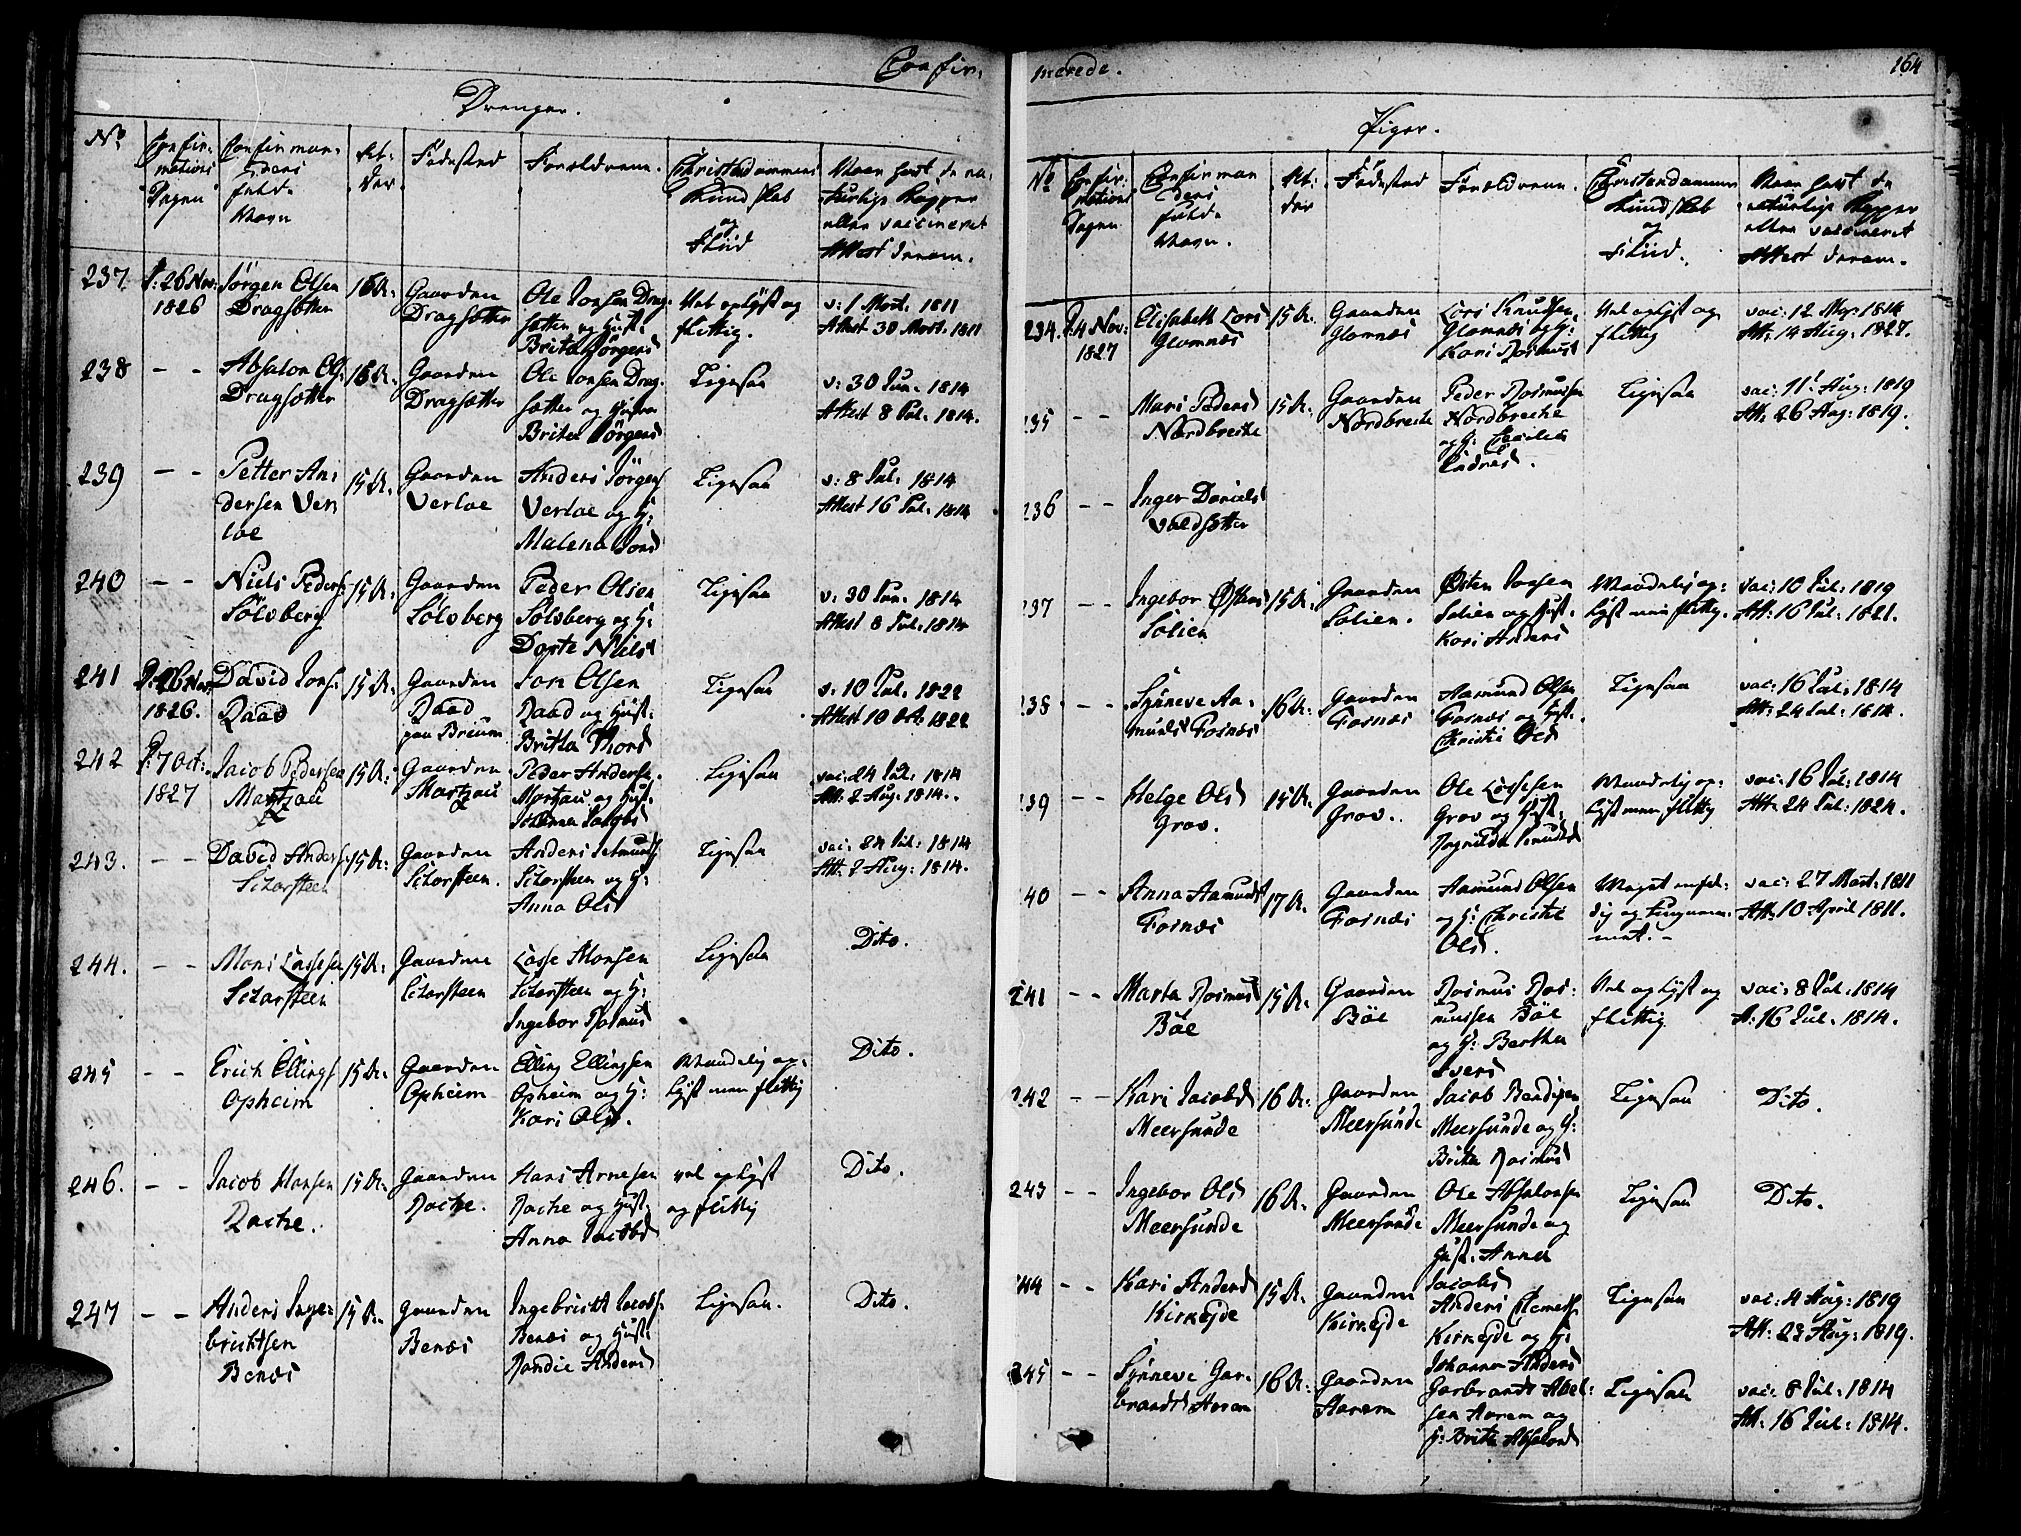 Confir-
Drenger.
No
Confir-
mations
Dagen
Confirman-
dens
fulde
Navn
Al-
der
Fødested
Forældrene.
Christendommens
Kundskab
og
Fliid
Naar havt de na-
turlige Kopper
eller vaccineret
Attest derom.
237.
26 Nov:
1826
Jørgen Olsen
Dragsætter
16 A:
Gaarden
Dragsætter
Ole Jonsen Drag-
sætter og Hust:
Brita Jørgens
Vel oplyst og
flittig.
v: 1 Mart. 1811
Attest 30 Mart. 1811
238
- -
Absalon Ols:
Dragsætter
16 A:
Gaarden
Dragsætter
Ole Jonsen Drag-
sætter og Hustru
Brita Jørgens
Ligesaa
v: 30 Jun. 1814
Attest 8 Jul. 1814.
239
- -
Petter An-
dersen Ver-
loe
15 A:
Gaarden
Verloe
Anders Jørgens
Verloe og H:
Malena Jons
Ligesaa
v: 8 Jul: 1814
Attest 16 Jul. 1814
240
- -
Niels Peders-
Sölvberg
15 A:
Gaarden
Sölvberg
Peder Olsen
Sölvberg og H:
Dorte Niels
Ligesaa
v: 30 Jun. 1814
Attest 8 Jul: 1814
241
26 Nov:
1826.
David Jons:
Raad
15 A:
Gaarden
Raad
paa Breum
Jon Olsen
Raad og Hust:
Britta Thors
Ligesaa
v: 10 Jul. 1822
Attest 10 Oct. 1822
242
7 Oct.
1827
Jacob Pedersen
Martzau
15 A:
Gaarden
Martzau
Peder Anderse.
Martzau og Hust:
Ligesaa
vac: 24 Jul: 1814
Att: 2 Aug: 1814.
243.
- -
David Anders:
Sitarsteen
15 A:
Gaarden
Sitarsteen.
Anders
Sitarsteen og H:
Anna Ols
Ligesaa
vac: 24 Jul: 1814
Att: 2 Aug: 1814.
244.
- -
Mons Lassesen
Sitarsteen
15 A:
Gaarden
Sitarsteen
Lasse Monsen
Sitarsteen og H:
Ingebor Rasmus
Ligesaa
Dito.
245
- -
Erich Ellings
Opheim
15 A:
Gaarden
Opheim
Elling Ellingsen
Opheim og H:
Kari Ols.
Maadelig op-
lyst men flittig
Dito.
246.
- -
Jacob Hansen
Racke.
15 A:
Gaarden
Racke.
Hans Arnesen
Racke og Hust:
Anna Jacobs
vel oplyst
og flittig
Dito.
247
- -
Anders Inge-
brichtsen
Benæs
15 A:
Gaarden
Benæs
Ingebricht Jacobs:
Benæs og Hust:
Randie Anders
Ligesaa.
Dito.
merede.
164
Piger.
No
Confir-
mations
Dagen
Confirman
dens
fulde
Navn.
Al:
der
Fødested
Forældrene.
Christendommens
Kundskab
og
Fliid.
Naar havt de
naturlige Kopper
eller vaccineret
Attest derom.
234.
4 Nov:
1827
Elisabeth Lars
Glomnæs
15 A:
Gaarden
Glomnæs
Lars Knudsen
Glomnæs og H:
Kari Rasmus
Vel oplyst og
flittig
vac: 12 May 1814
Att: 14 Aug: 1827.
235
- -
Mari Peders
Nordbreche
15 A:
Gaarden
Nordbreche
Peder Rasmussen
Nordbreche
og H: Cecilia
Endres.
Ligesaa
vac: 11 Aug: 1819
Att: 26 Aug: 1819.
236
- -
Inger Daniels
Voldsætter
237
- -
Ingebor Østens
Solien
15 A:
Gaarden
Solien.
Østen Jonsen
Solien og Hust.
Kari Anders
Maadelig op-
lyst men flittig.
vac: 10 Jul: 1819
Att: 16 Jul: 1821.
238
- -
Synneve Aa-
munds Fosnæs
16 A:
Gaarden
Fosnæs
Aamund Olsen
Fosnæs og Hust.
Christi Ols
Ligesaa
vac: 16 Jul: 1814
Att: 24 Jul: 1814.
239
- -
Helge Ols
Grov.
15 A:
Gaarden
Grov.
Ole Lassesen
Grov og Hust:
Ragnilda Knuds
Maadelig op-
lyst men flittig
vac: 16 Jul: 1814
Att: 24 Jul: 1824.
240
- -
Anna Aamunds
Fosnæs
17 A:
Gaarden
Fosnæs
Aamund Olsen
og H: Christi
Ols.
Meget
vac: 27 Mart: 1811
Att: 10 April 1811.
241
- -
Marta Rasmus
Böe
15 A:
Gaarden
Böe
Rasmus Ras-
mussen Böe
og H: Berthe
Ivers
Vel oplyst og
flittig
vac: 8 Jul: 1814
A: 16 Jul: 1814.
242
- -
Kari Jacobs
Meersunde
16 A:
Gaarden
Meersunde
Jacob Bendixen
Meersunde og H:
Brita Rasmus
Ligesaa
Dito.
243
- -
Ingebor Ols
Meersunde
16 A:
Gaarden
Meersunde
Ole Absalonsen
Meersunde og
Hust. Anna
Jacobs
Ligesaa
Dito.
244
- -
Kari Anders
Kirkejde
15 A:
Gaarden
Kirkejde
Anders Clemets:
Kirkejde og H:
Johanna Anders
Ligesaa
vac: 4 Aug: 1819
Att: 23 Aug: 1819.
245
- -
Synneve Gar-
brands Aarem
16 A:
Gaarden
Aarem
Garbrandt Abel-
sen Aarem og
H: Britte Absalons
Ligesaa
vac: 8 Jul: 1814
Att: 16 Jul: 1814.